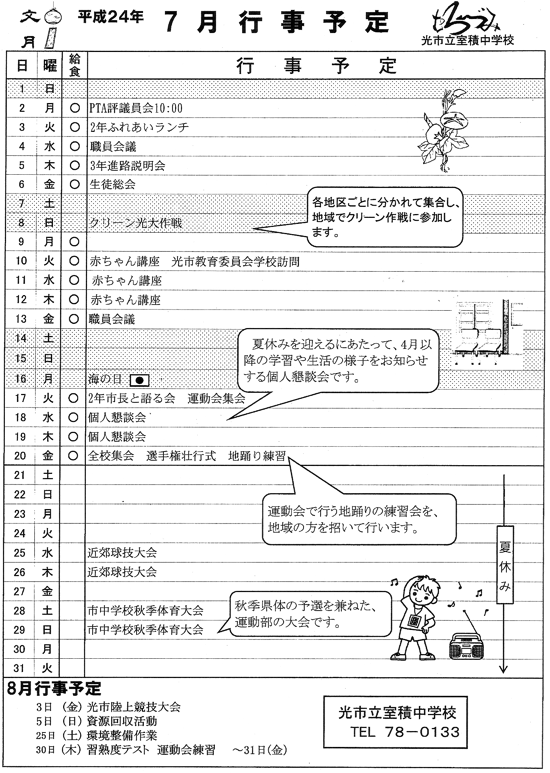 文
月
平成24年 7月行事予定
光市立室積中学校
日 曜 給食 行事予定
1 日
2 月 ○ PTA評議員会10:00
3 火 ○ 2年ふれあいランチ
4 水 ○ 職員会議
5 木 ○ 3年進路説明会
6 金 ○ 生徒総会
7 土
8 日 クリーン光大作戦
各地区ごとに分かれて集合し、
地域でクリーン作戦に参加し
ます。
9 月 ○
10 火 ○ 赤ちゃん講座 光市教育委員会学校訪問
11 水 ○ 赤ちゃん講座
12 木 ○ 赤ちゃん講座
13 金 ○ 職員会議
14 土
15 日
16 月 海の日
夏休みを迎えるにあたって、4月以
降の学習や生活の様子をお知らせ
する個人懇談会です。
17 火 ○ 2年市長と語る会 運動会集会
18 水 ○ 個人懇談会
19 木 ○ 個人懇談会
20 金 ○ 全校集会 選手権壮行式 地踊り練習
21 土
22 日
23 月
運動会で行う地踊りの練習会を、
地域の方を招いて行います。
24 火
25 水 近郊球技大会
26 木 近郊球技大会
夏休み
27 金
28 土 市中学校秋季体育大会
29 日 市中学校秋季体育大会
秋季県体の予選を兼ねた、
運動部の大会です。
30 月
31 火
8月行事予定
3日 (金) 光市陸上競技大会
5日 (日) 資源回収活動
25日 (土) 環境整備作業
30日 (木) 習熟度テスト 運動会練習 ~31日(金)
光市立室積中学校
TEL 78-0133